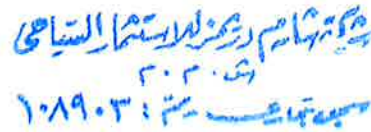 شركة شارم دريمز للاستثمار السياحى
ش.م.م
سجل تجارى رقم : ١٠٨٩٠٣